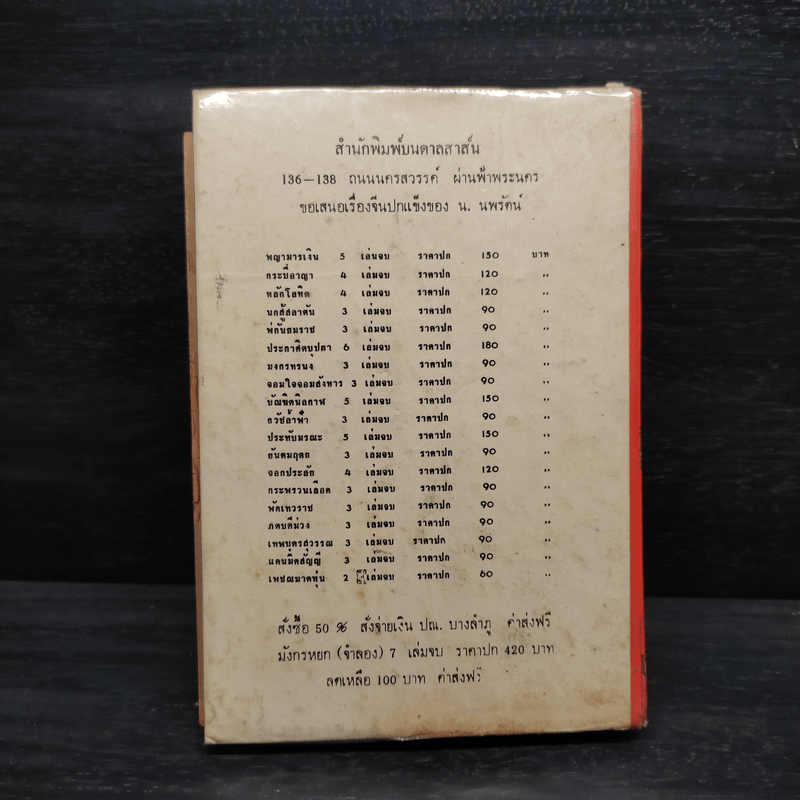 สำนักพิมพ์บันดาลสาส์น
136–138 ถนนนครสวรรค์ ผ่านฟ้าพระนคร
ขอเสนอเรื่องจีนปกแข็งของ น. นพรัตน์
พญามารเงิน 5 เล่มจบ ราคาปก 150 บาท
กระบี่อาญา 4 เล่มจบ ราคาปก 120 ,,
หลักโลหิต 4 เล่มจบ ราคาปก 120 ,,
นกสู้สลาตัน 3 เล่มจบ ราคาปก 90 ,,
พักันยมราช 3 เล่มจบ ราคาปก 90 ,,
ประกาศิตบุปผา 6 เล่มจบ ราคาปก 180 ,,
มงกรทรนง 3 เล่มจบ ราคาปก 90 ,,
จอมใจจอมสังหาร 3 เล่มจบ ราคาปก 90 ,,
บัณฑิตนิลกาฬ 5 เล่มจบ ราคาปก 150 ,,
ธวัชล้ำฟ้า 3 เล่มจบ ราคาปก 90 ,,
ประทับมรณะ 5 เล่มจบ ราคาปก 150 ,,
ยันตมฤตยู 3 เล่มจบ ราคาปก 90 ,,
จอกประลัย 4 เล่มจบ ราคาปก 120 ,,
กระพรวนเลือด 3 เล่มจบ ราคาปก 90 ,,
พัดเทวราช 3 เล่มจบ ราคาปก 90 ,,
ภตบดีม่วง 3 เล่มจบ ราคาปก 90 ,,
เทพบุตรสวรรณ 3 เล่มจบ ราคาปก 90 ,,
แดนมิคสัญญี 3 เล่มจบ ราคาปก 90 ,,
เพชฌฆาตหุ่น 2 เล่มจบ ราคาปก 60 ,,
สั่งซื้อ 50 % สั่งจ่ายเงิน ปณ. บางลำภู ค่าส่งฟรี
มังกรหยก (จำลอง) 7 เล่มจบ ราคาปก 420 บาท
ลดเหลือ 100 บาท ค่าส่งฟรี